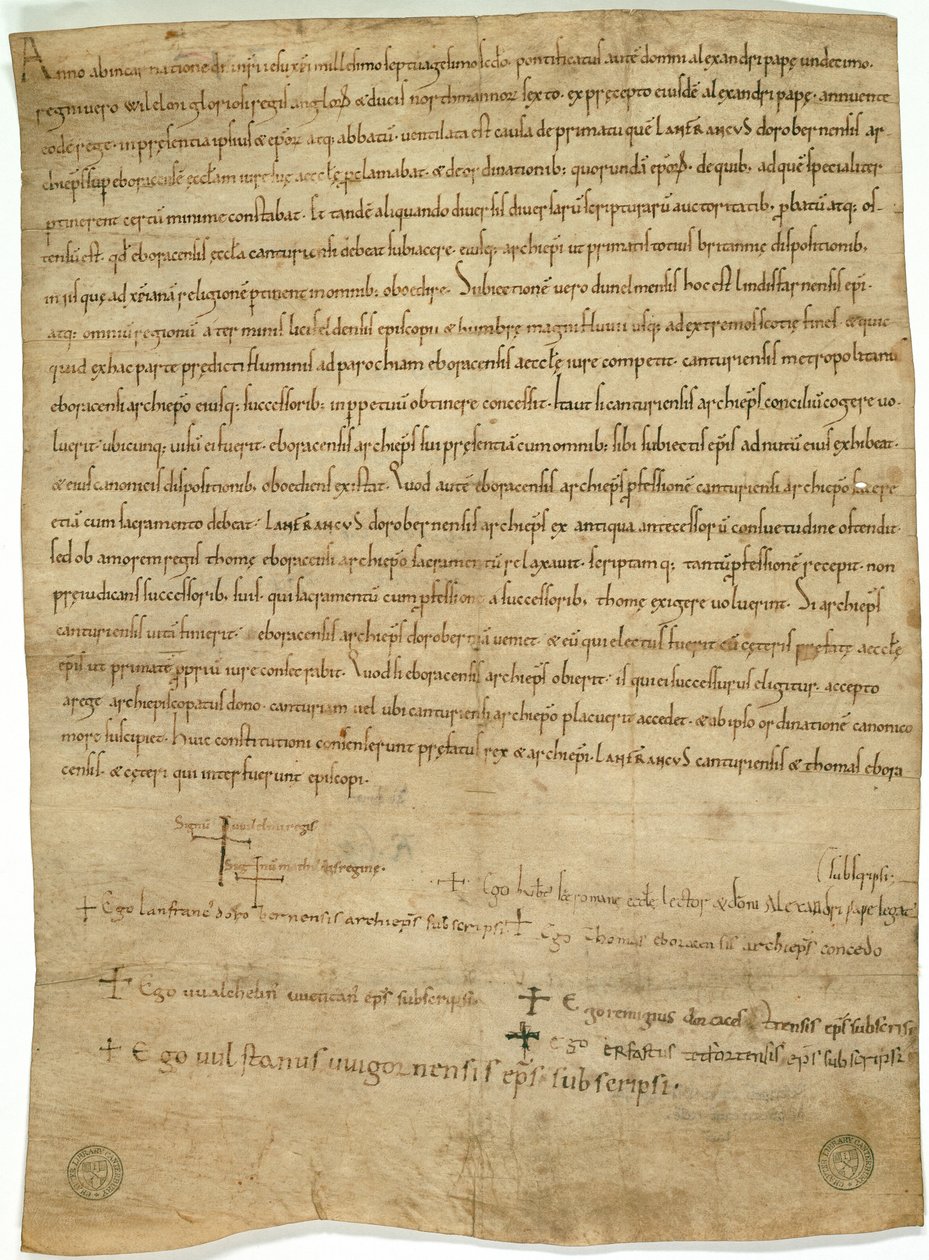 Anno ab incarnatione dñi nr̃i iesu xp̃i millesimo septuagesimo sc̃do. pontificatus autē domni alexandri papę undecimo.
regni vero wilelmi gloriosi regis anglorꝝ & ducis northmannorꝝ sexto. ex pręcepto eiusdē alexandri papę. annuente
eodē rege. in pręsentia ipsius & ep̃orꝝ atq; abbatū. ventilata est causa de primatu quē LANFRANCUS dorobernensis ar-
chiep̃s sup eboracensē ęccl̃am iure suę aeccl̃ę ꝓclamabat. & de ordinationib; quorundā ep̃orꝝ. de quib; ad quē specialiter
ꝑtinerent certū minime constabat. Et tandē aliquando diversis diversarū scripturarū auctoritatib; ꝓbatū atq; os-
tensū est. qđ eboracensis ęccl̃a canturiensi debeat subiacere. eiusq; archiep̃i ut primatis totius britannię dispositionib;
in iis quę ad xp̃ianā religionē ꝑtinent in omnib; oboedire. Subiectionē vero dunelmensis hoc est lindisfarnensis ep̃i.
atq; omniū regionū a terminis licifeldensis episcopii & humbrę magni fluvii usq; ad extremos scotię fines. & quic
quid ex hac parte prędicti fluminis ad parochiam eboracensis aeccl̃ę iure competit. canturiensis metropolitanus
eboracensi archiep̃o eiusq; successorib; in ꝑpetuū obtinere concessit. Ita ut si canturiensis archiep̃s conciliū cogere vo-
luerit. ubicunq; visū ei fuerit. eboracensis archiep̃s sui pręsentiā cum omnib; sibi subiectis ep̃is ad nutū eius exhibeat.
& eius canonicis dispositionib; oboediens existat. Quod autē eboracensis archiep̃s ꝓfessionē canturiensi archiep̃o facere
etiā cum sacramento debeat. LANFRANCUS dorobernensis archiep̃s ex antiqua antecessorū consuetudine ostendit.
sed ob amorem regis thomę eboracensi archiep̃o sacramentū relaxavit. scriptamq; tantū ꝓfessionē recepit. non
pręiudicans successorib; suis. qui sacramentū cum ꝓfessione a successorib; thomę exigere voluerint. Si archiep̃s
canturiensis vitā finierit. eboracensis archiep̃s doroberniā veniet. & eū qui electus fuerit cū cęteris pręfatę aeccl̃ę
ep̃is ut primatē ꝓpriū iure consecrabit. Quod si eboracensis archiep̃s obierit. is qui ei successurus eligitur. accepto
a rege archiepiscopatus dono. canturiam vel ubi canturiensi archiep̃o placuerit accedet. & ab ipso ordinationē canonico
more suscipiet. Huic constitutioni consenserunt pręfatus rex & archiep̃i. LANFRANCUS canturiensis & thomas ebora
censis. & cęteri qui interfuerunt episcopi.
Signū wilelmi regis
Signū mathildis reginę.
+ Ego hub̃t sc̃ę romanę eccl̃ę lector & dom̃i Alexandri pape legat⁹
subscripsi.
+ Ego lanfranc⁹ dorobernensis archiep̃s subscripsi
+ Ego Thomas eboracensis archiep̃s concedo
+ Ego uualchelin⁹ uuentan⁹ ep̃s subscripsi.
+ Ego remigius dorcacestrensis ep̃s subscripsi
+ Ego erfastus tetfortensis ep̃s subscripsi
+ Ego uulstanus uuigornensis ep̃s subscripsi.
CHAPTER LIBRARY CANTERBURY
CHAPTER LIBRARY CANTERBURY